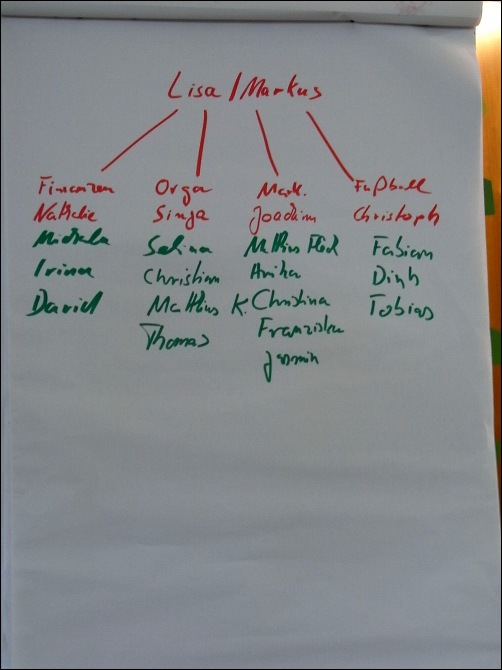 Lisa / Markus
Finanzen Orga Mark. Fußball
Nathalie Sinja Joachim Christoph
Michela Selina Matthias Fabian
Irina Christian Anika Dinh
David Matthias K. Christina Tobias
Thomas Franziska
Jasmin